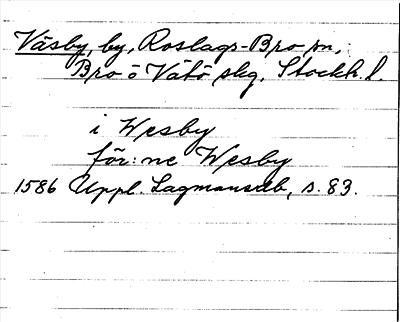 Väsby, by, Roslags-Bro sn,
Bro o Vätö skg, Stockh. l.
i Wesby
för: ne Wesby
1586 Uppl. Lagmansdb, s. 83.